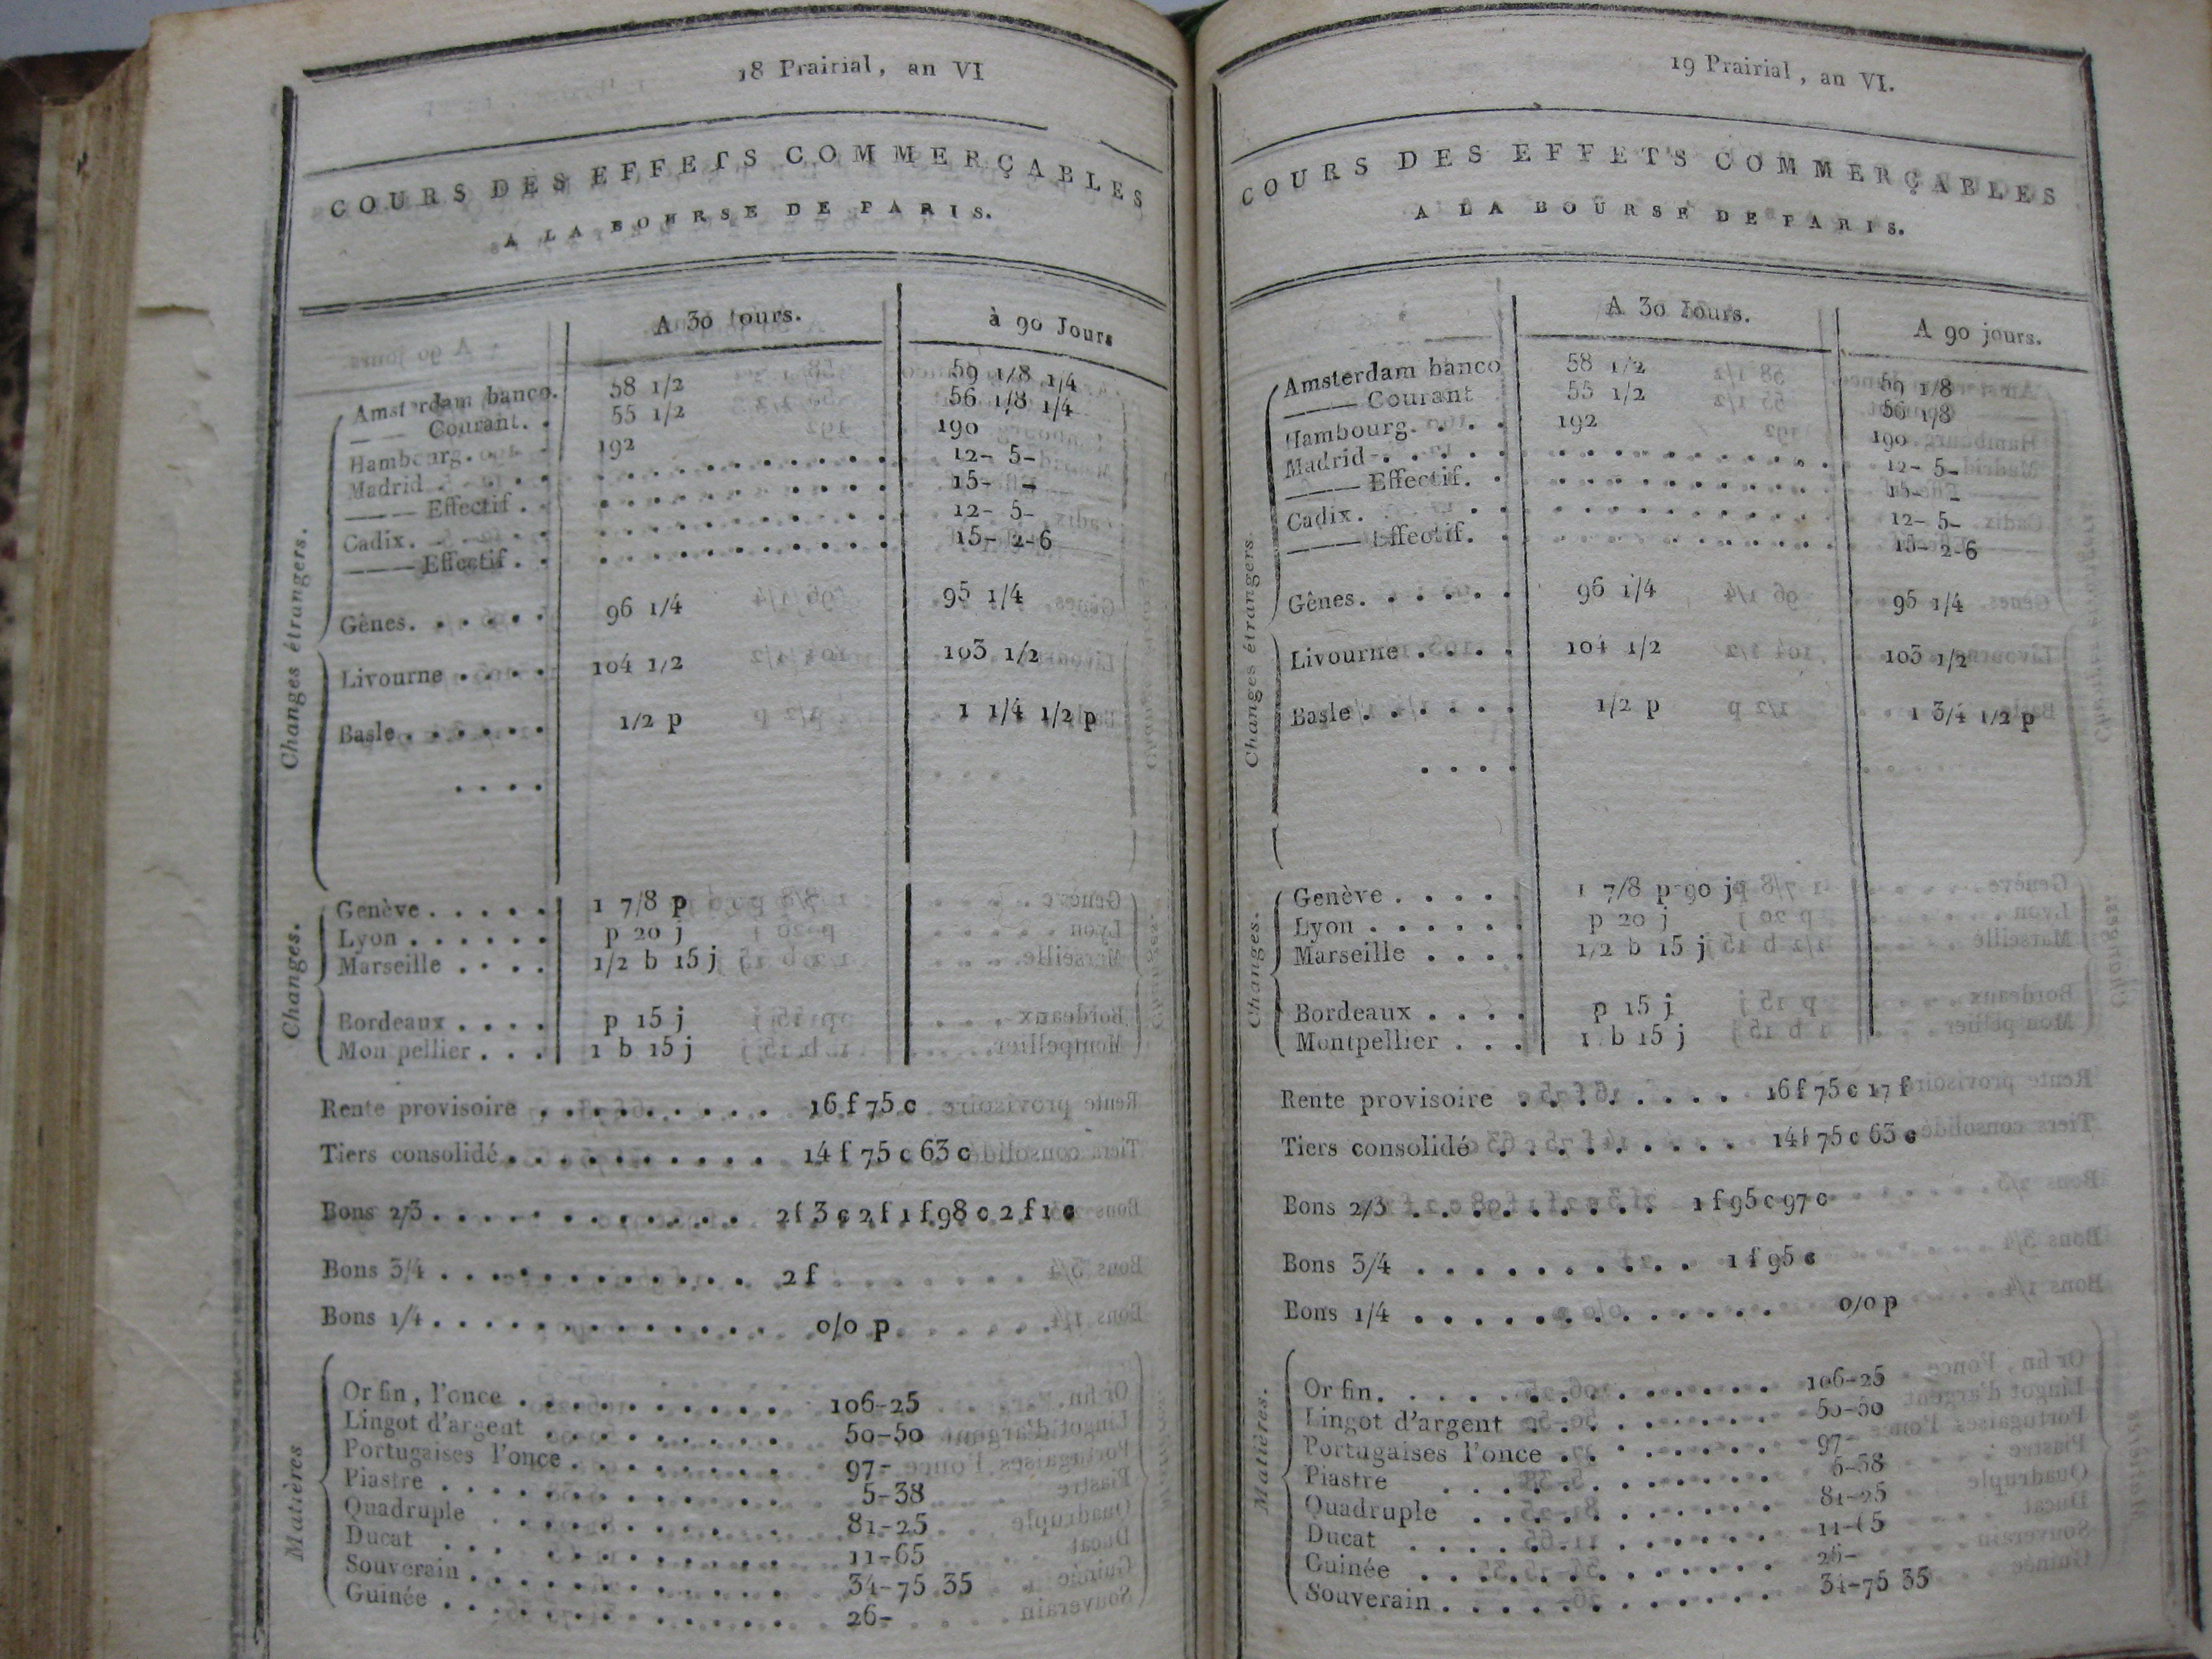 18 Prairial, an VI
COURS DES EFFETS COMMERÇABLES
A LA BOURSE DE PARIS.
A 30 jours. à 90 Jours
Changes étrangers.
Amsterdam banco. 58 1/2 59 1/8 1/4
—— Courant. . 55 1/2 56 1/8 1/4
Hambourg. . . . 192 190
Madrid . . . . . 12- 5-
—— Effectif . . 15- -
Cadix. . . . . . 12- 5-
—— Effectif . . 15- 2-6
Gênes. . . . . . 96 1/4 95 1/4
Livourne . . . . 104 1/2 103 1/2
Basle . . . . . . 1/2 p 1 1/4 1/2 p
. . . .
Changes.
Genève . . . . . 1 7/8 p
Lyon . . . . . . p 20 j
Marseille . . . . 1/2 b 15 j
Bordeaux . . . . p 15 j
Montpellier . . . 1 b 15 j
Rente provisoire . . . . . . . . . 16 f 75 c
Tiers consolidé . . . . . . . . . . 14 f 75 c 63 c
Bons 2/3 . . . . . . . . . . . . 2 f 3 c 2 f 1 f 98 c 2 f 1 c
Bons 3/4 . . . . . . . . . . . . 2 f
Bons 1/4 . . . . . . . . . . . . . 0/0 p
Matières
Or fin, l'once . . . . . . . . . . 106-25
Lingot d'argent . . . . . . . . . 50-50
Portugaises l'once . . . . . . . . 97-
Piastre . . . . . . . . . . . . . 5-38
Quadruple . . . . . . . . . . . 81-25
Ducat . . . . . . . . . . . . 11-65
Souverain . . . . . . . . . . . . 34-75 35
Guinée . . . . . . . . . . . . . 26-
19 Prairial, an VI.
COURS DES EFFETS COMMERÇABLES
A LA BOURSE DE PARIS.
A 30 Jours. A 90 jours.
Changes étrangers.
Amsterdam banco 58 1/2 59 1/8
—— Courant 55 1/2 56 1/8
Hambourg. . . . 192 190
Madrid . . . . . 12- 5-
—— Effectif. . 15- -
Cadix. . . . 12- 5-
—— Effectif. . 15- 2-6
Gênes. . . . . . 96 1/4 95 1/4
Livourne . . . . 104 1/2 103 1/2
Basle . . . . . . 1/2 p 1 3/4 1/2 p
. . . .
Changes.
Genève . . . . 1 7/8 p 90 j
Lyon . . . . . . p 20 j
Marseille . . . . 1/2 b 15 j
Bordeaux . . . . p 15 j
Montpellier . . . 1 b 15 j
Rente provisoire . . . . . . . . 16 f 75 c 17 f
Tiers consolidé . . . . . . . . . 14 f 75 c 63 c
Bons 2/3 . . . . . . . . . . 1 f 95 c 97 c
Bons 3/4 . . . . . . . . . . 1 f 95 c
Bons 1/4 . . . . . . . . . . . . 0/0 p
Matières.
Or fin. . . . . . . . . . . . . 106-25
Lingot d'argent . . . . . . . . . 50-50
Portugaises l'once . . . . . . . . 97-
Piastre . . . . . . . . . . . 5-38
Quadruple . . . . . . . . . . 81-25
Ducat . . . . . . . . . . . . 11-65
Guinée . . . . . . . . . . . . 26-
Souverain . . . . . . . . . . . 34-75 35